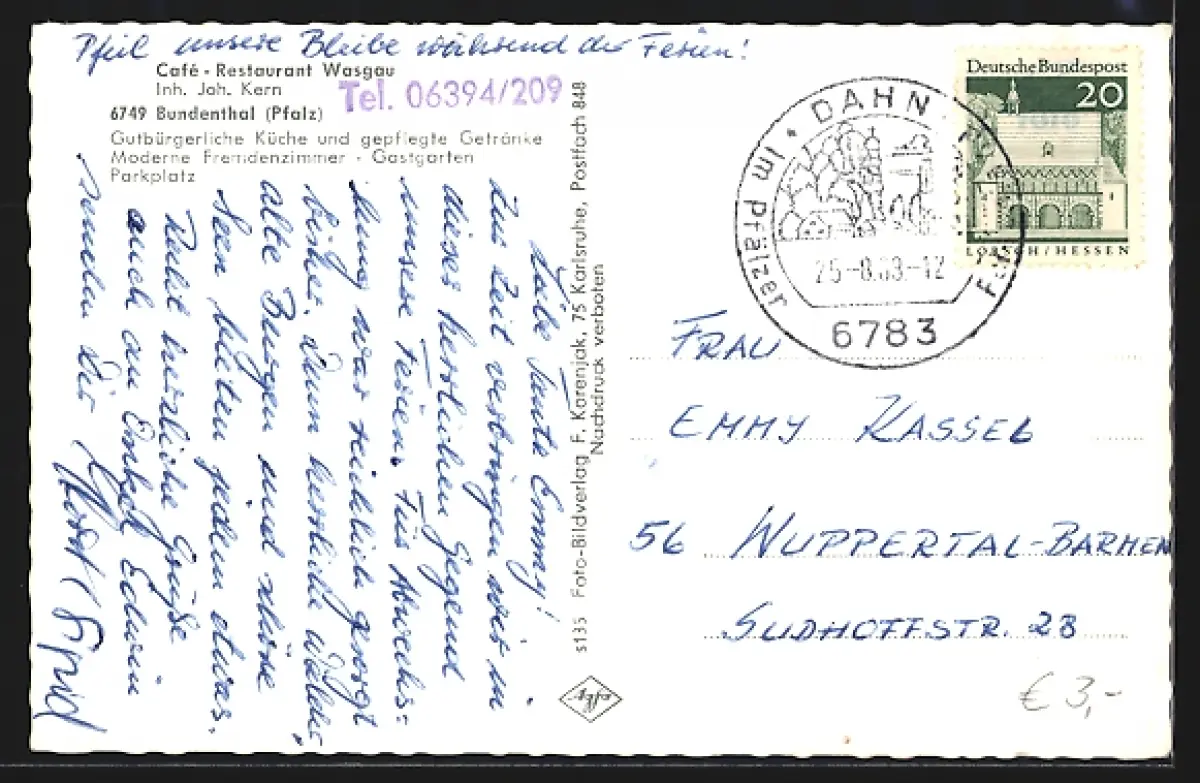 Pfeil unsere Bleibe während der Ferien!
Café - Restaurant Wasgau
Inh. Joh. Kern
Tel. 06394/209
6749 Bundenthal (Pfalz)
Gutbürgerliche Küche und gepflegte Getränke
Moderne Fremdenzimmer - Gastgarten
Parkplatz
Liebe Tante Emmy!
Zur Zeit verbringen wir in
dieser herrlichen Gegend
unsere Ferien. Für Abwechs=
lung war reichlich gesorgt
bisher. Denn herrliche Wälder,
alte Burgen und schöne
Seen bieten jedem etwas.
Recht herzliche Grüße
auch an Onkel Edwin
senden Dir
Horst/
S135 Foto-Bildverlag F. Karenjak, 75 Karlsruhe, Postfach 848
Nachdruck verboten
Agfa
Deutsche Bundespost
20
LORSCH/HESSEN
DAHN
Im Pfälzer
25.-8.69.-12
6783
FRAU
EMMY KASSEL
56 WUPPERTAL-BARMEN
SUDHOFFSTR. 28
€ 3,-